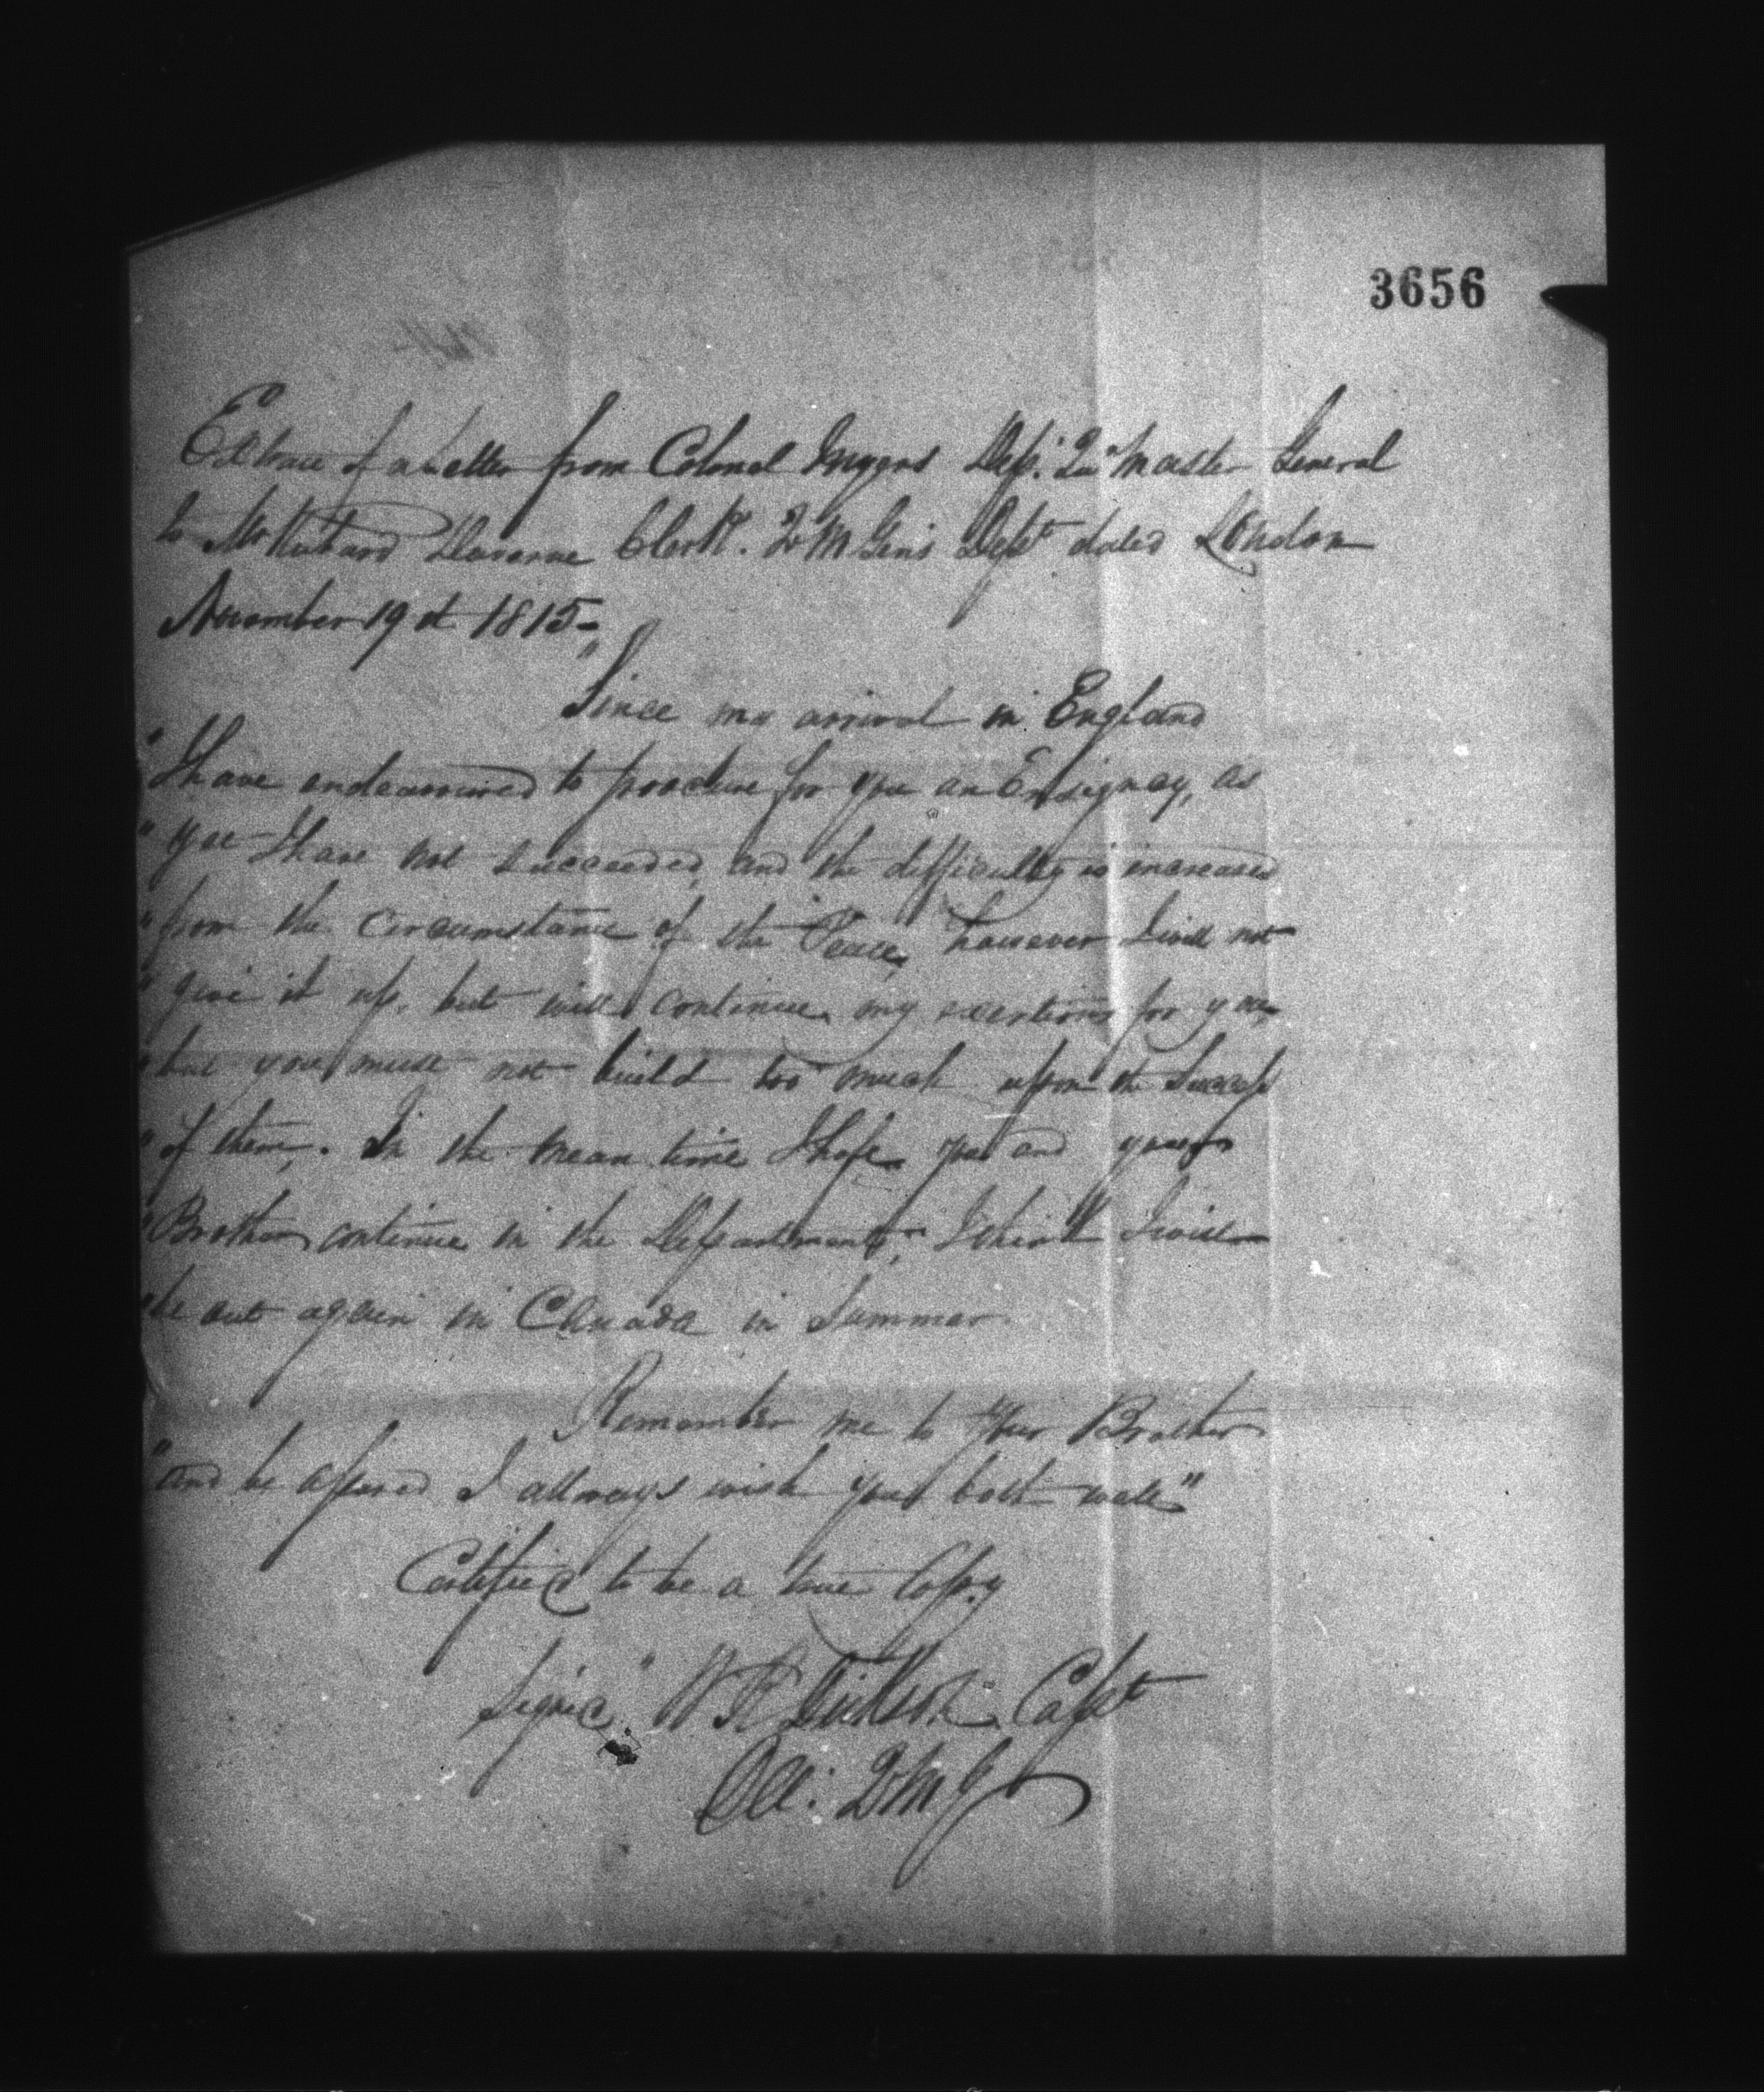 3656
Extract of a Letter from Colonel Myers Dep. Qur Master General
to Mr Richard Clerk. Q M Genl's Dept dated London
November 19th 1815 -
"Since my arrival in England
"I have endeavoured to procure for you an Ensigncy, as
"yet I have not succeeded, and the difficulty is increased
"from the circumstance of the Peace, however I will not
"give it up, but will continue my exertions for you,
"but you must not build too much upon the Success
"of them,. In the mean time I hope you and your
"Brother continue in the Department, I think I will
"be out again in Canada in Summer.
Remember me to your Brother
"and be assured I allways wish you both well"
Certified to be a true Copy
Signed " W R Capt
QMG